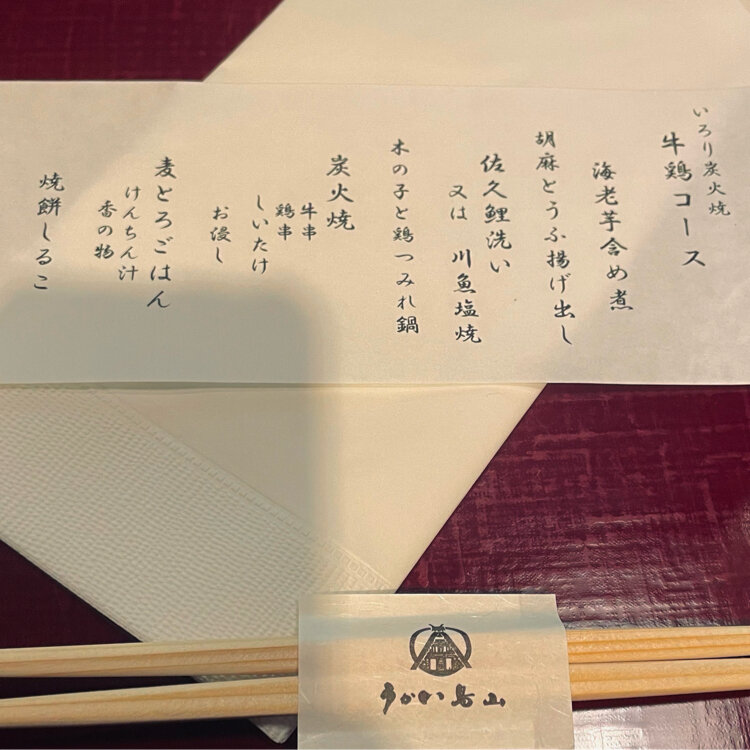 いろり炭火焼
牛鶏コース
海老芋含め煮
胡麻とうふ揚げ出し
佐久鯉洗い
又は 川魚塩焼
木の子と鶏つみれ鍋
炭火焼
牛串
鶏串
しいたけ
お浸し
麦とろごはん
けんちん汁
香の物
焼餅しるこ
うかい鳥山